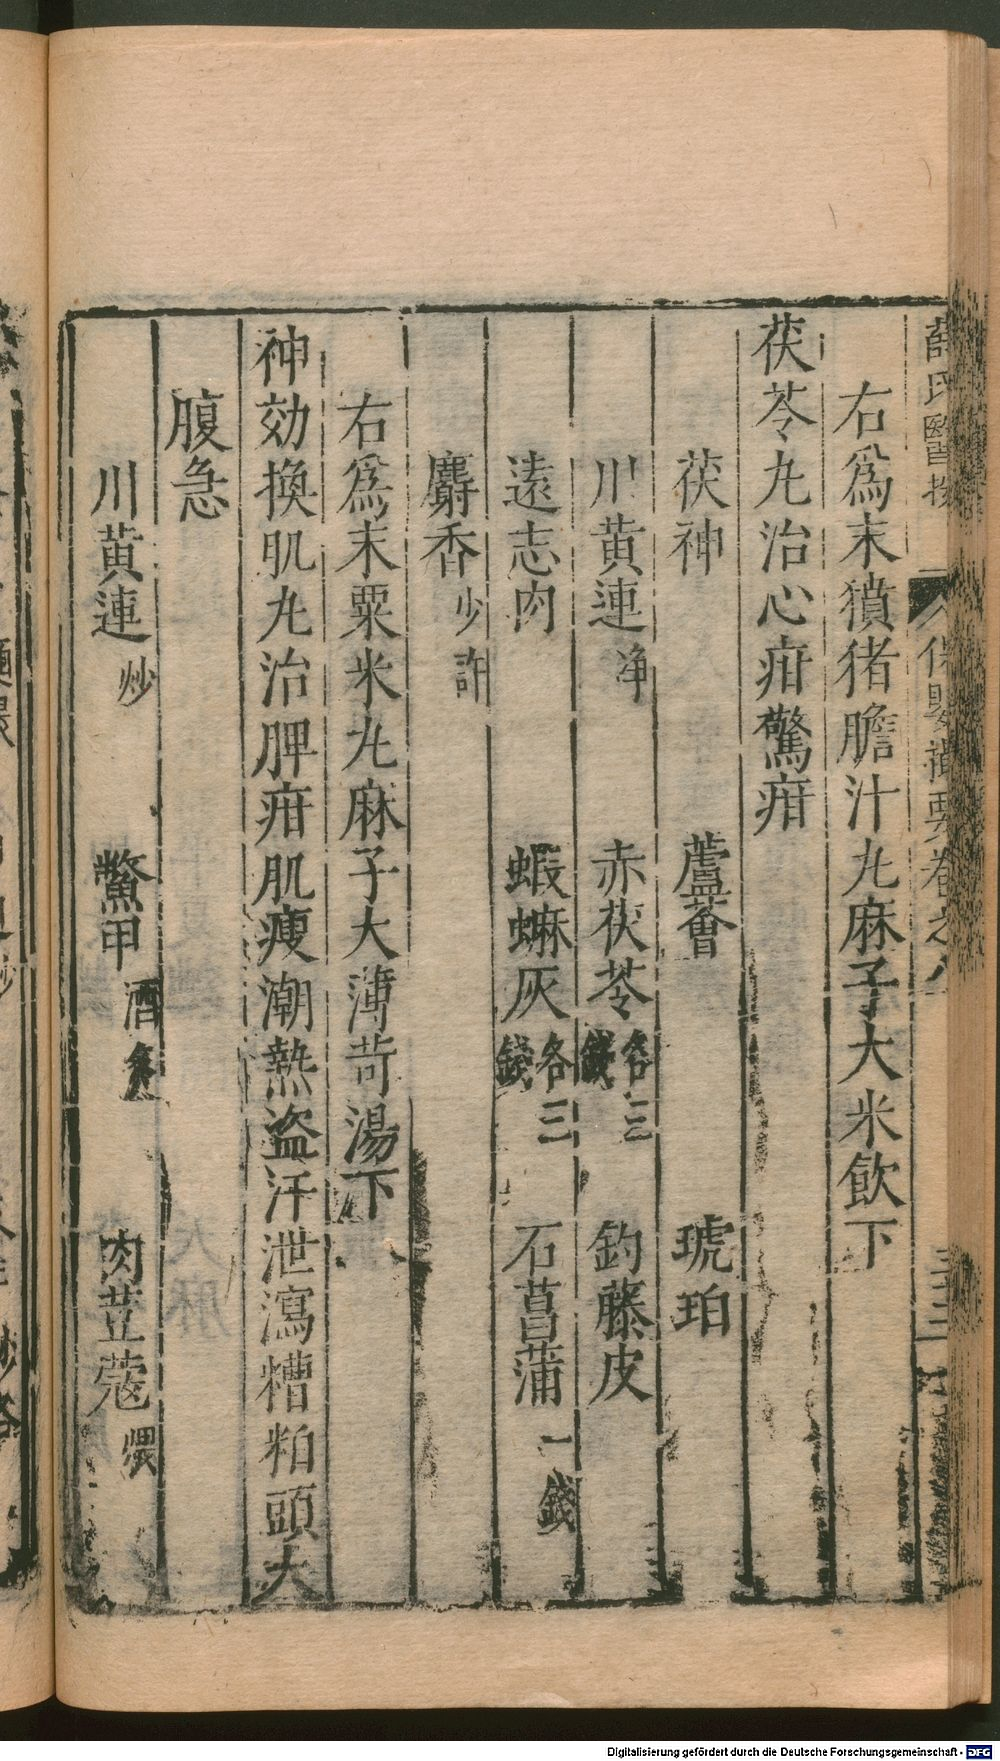 薛氏醫按 保嬰撮要卷之八 三十二
右爲末獖猪膽汁丸麻子大米飲下
茯苓丸治心疳驚疳
茯神 蘆薈 琥珀
川黃連净 赤茯苓各三錢 釣藤皮
遠志肉 蝦蟆灰各三錢 石菖蒲一錢
麝香少許
右爲末粟米丸麻子大薄荷湯下
神効換肌丸治脾疳肌瘦潮熱盜汗泄瀉糟粕頭大
腹急
川黃連炒 鱉甲酒炙 肉荳蔻煨
Digitalisierung gefördert durch die Deutsche Forschungsgemeinschaft - DFG